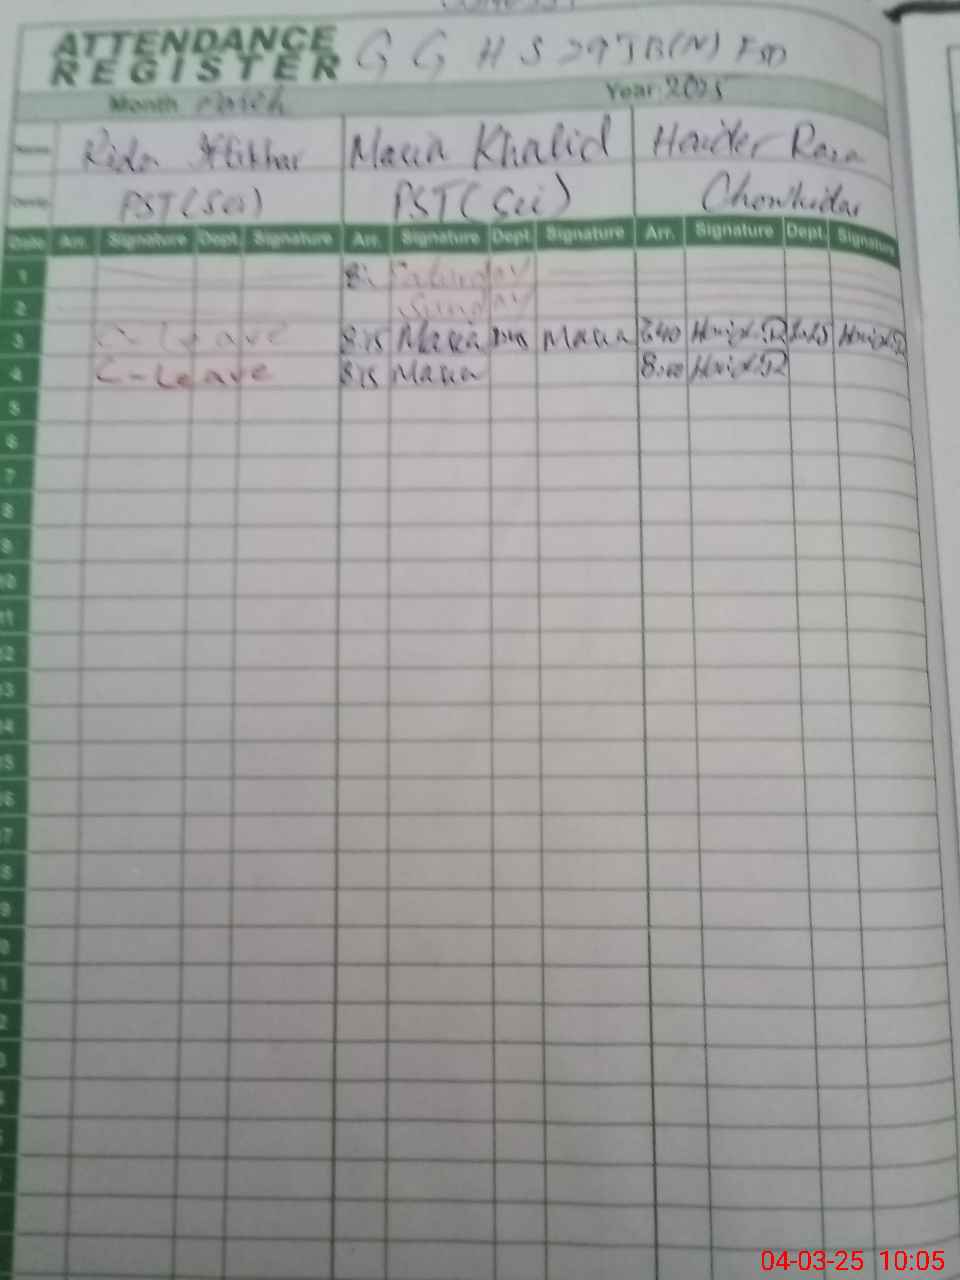 ATTENDANCE REGISTER G G H S 297JB(N) FSD
Month March Year 2025
Name Rida Iftikhar Maria Khalid Haider Raza
Desig. PST(Sci) PST(Sci) Chowkidar
Date Arr. Signature Dept. Signature Arr. Signature Dept. Signature Arr. Signature Dept. Signature
1 Saturday
2 Sunday
3 C-Leave 8:15 Maria Maria Haider
4 C-Leave 815 Maria 8:00 Haider
5
6
7
8
9
10
11
12
13
14
15
16
17
18
9
0
1
2
3
04-03-25 10:05